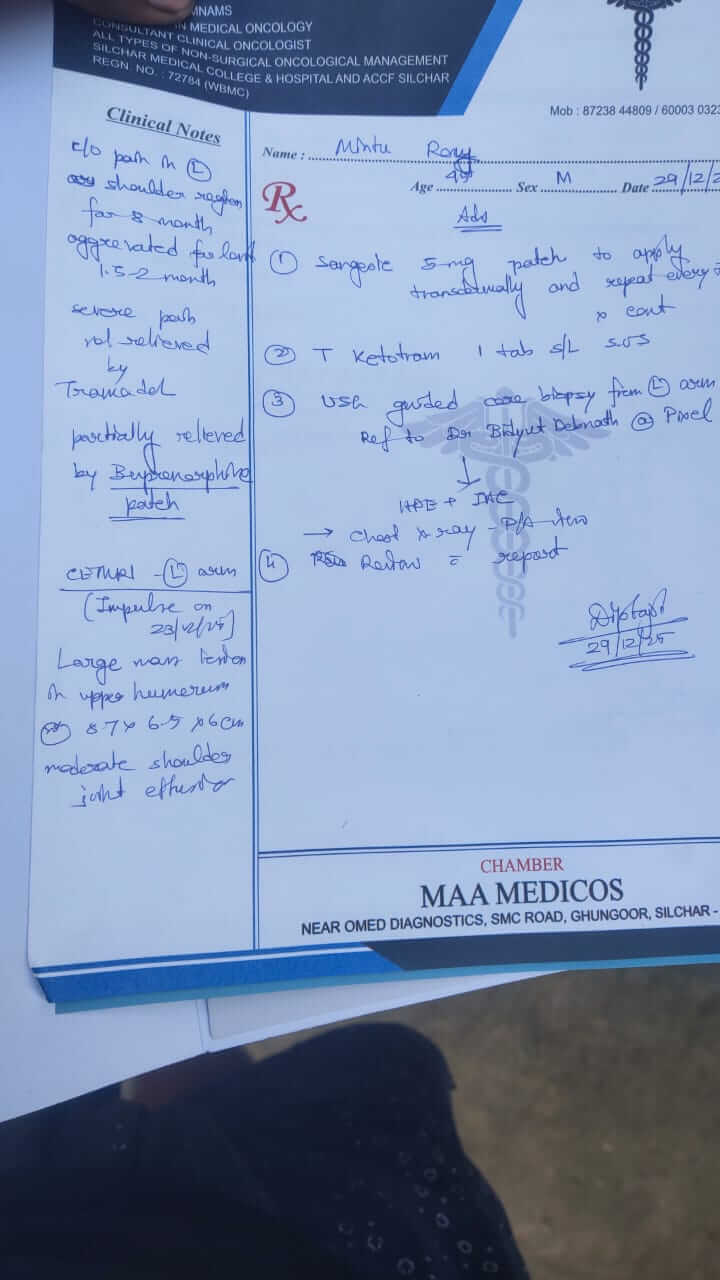 MNAMS
IN MEDICAL ONCOLOGY
CONSULTANT CLINICAL ONCOLOGIST
ALL TYPES OF NON-SURGICAL ONCOLOGICAL MANAGEMENT
SILCHAR MEDICAL COLLEGE & HOSPITAL AND ACCF SILCHAR
REGN NO. : 72784 (WBMC)
Mob : 87238 44809 / 60003 0323
Clinical Notes
c/o pain in (L)
shoulder region
for 8 month
aggrevated for last
1.5-2 month
severe pain
not relieved
by
Tramadol
partially relieved
by Buprenorphine
patch
CEMRI - (L) arm
(Impulse on
23/12/25)
Large mass lesion
in upper humerus
8.7 x 6.5 x 6 cm
moderate shoulder
joint effusion
Name : Mintu Roy
Age 49 Sex M Date 29/12/2
Rx
Adv
(1) 5 mg patch to apply
and repeat every
x cont
(2) T Ketotram 1 tab S/L SOS
(3) USG guided core biopsy from (L) arm
Ref to Dr Bidyut Debnath @ Pixel
↓
HPE + IHC
→ Chest X-ray - P/A view
(4) Review c̄ report
29/12/25
CHAMBER
MAA MEDICOS
NEAR OMED DIAGNOSTICS, SMC ROAD, GHUNGOOR, SILCHAR -